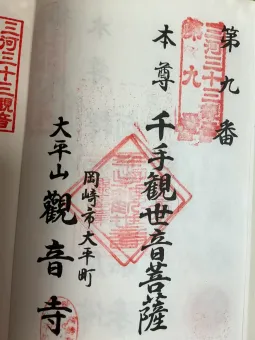 第九番
三河三十三観音
第九
本尊 千手観世音菩薩
岡崎市大平町
大平山 觀音寺
三河三十三観音